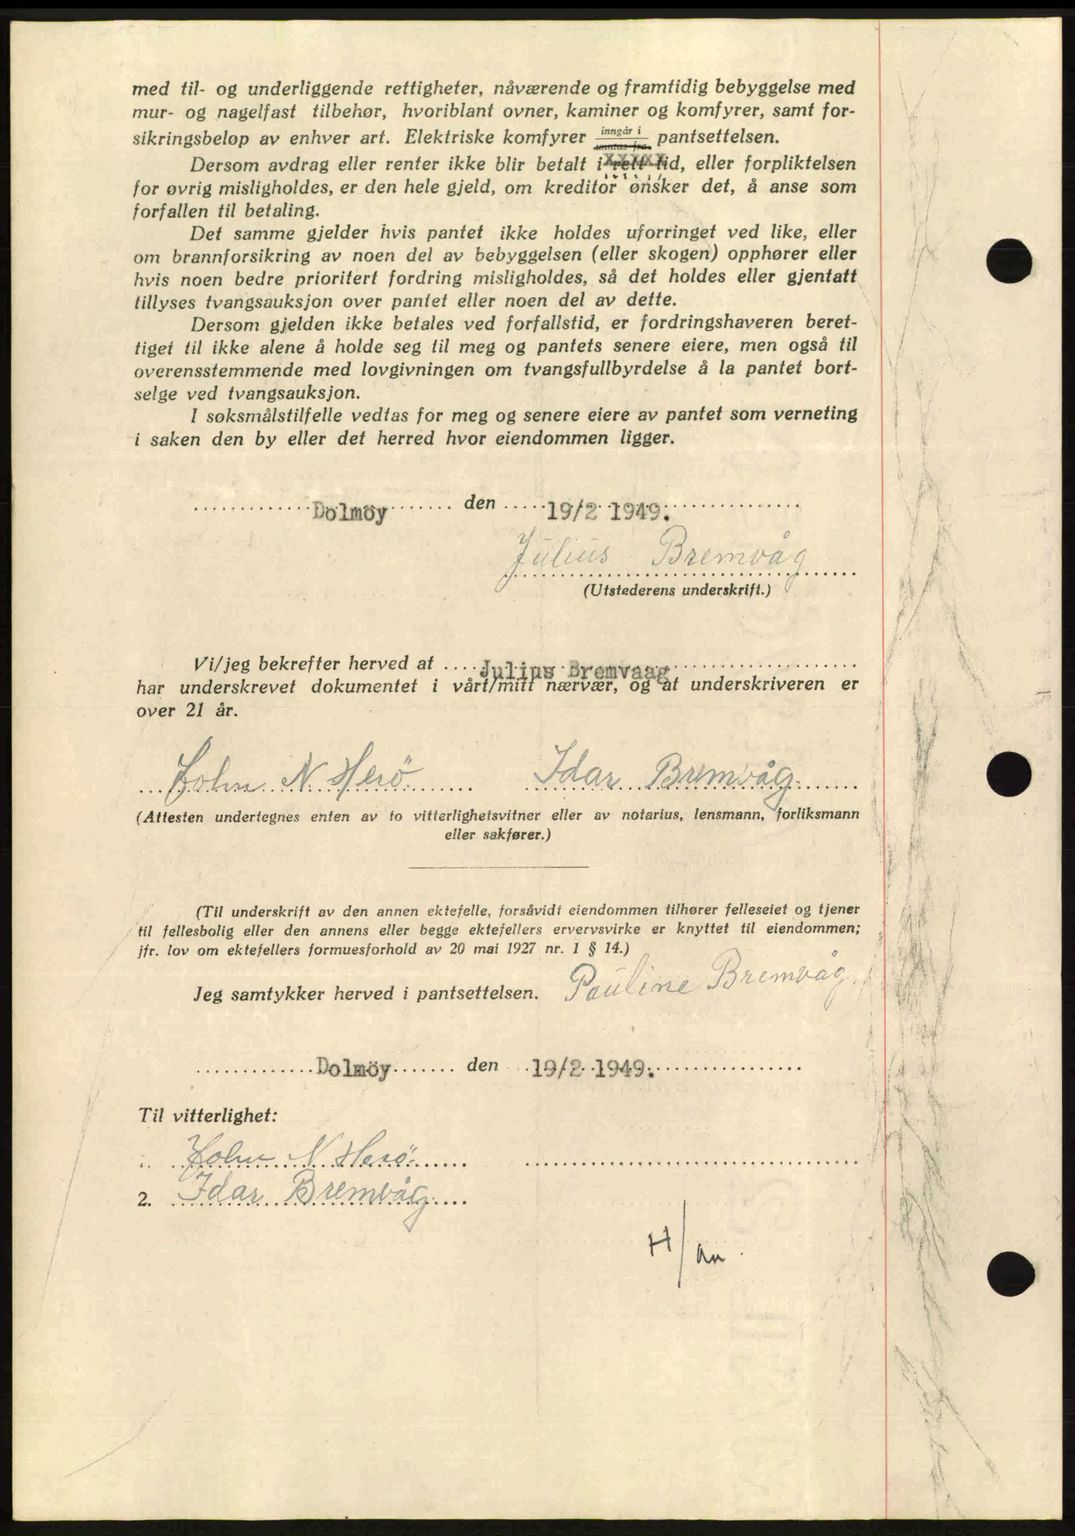 med til- og underliggende rettigheter, nåværende og framtidig bebyggelse med
mur- og nagelfast tilbehør, hvoriblant ovner, kaminer og komfyrer, samt for-
sikringsbeløp av enhver art. Elektriske komfyrer inngår i unntas fra pantsettelsen.
Dersom avdrag eller renter ikke blir betalt i rett tid, eller forpliktelsen
for øvrig misligholdes, er den hele gjeld, om kreditor ønsker det, å anse som
forfallen til betaling.
Det samme gjelder hvis pantet ikke holdes uforringet ved like, eller
om brannforsikring av noen del av bebyggelsen (eller skogen) opphører eller
hvis noen bedre prioritert fordring misligholdes, så det holdes eller gjentatt
tillyses tvangsauksjon over pantet eller noen del av dette.
Dersom gjelden ikke betales ved forfallstid, er fordringshaveren beret-
tiget til ikke alene å holde seg til meg og pantets senere eiere, men også til
overensstemmende med lovgivningen om tvangsfullbyrdelse å la pantet bort-
selge ved tvangsauksjon.
I søksmålstilfelle vedtas for meg og senere eiere av pantet som verneting
i saken den by eller det herred hvor eiendommen ligger.
Dolmöy den 19/2 1949.
Julius Bremvåg
(Utstederens underskrift.)
Vi/jeg bekrefter herved at Julius Bremvaag
har underskrevet dokumentet i vårt/mitt nærvær, og at underskriveren er
over 21 år.
John N Herö Idar Bremvåg.
(Attesten undertegnes enten av to vitterlighetsvitner eller av notarius, lensmann, forliksmann
eller sakfører.)
(Til underskrift av den annen ektefelle, forsåvidt eiendommen tilhører felleseiet og tjener
til fellesbolig eller den annens eller begge ektefellers ervervsvirke er knyttet til eiendommen;
jfr. lov om ektefellers formuesforhold av 20 mai 1927 nr. 1 § 14.)
Jeg samtykker herved i pantsettelsen. Pauline Bremvåg.
Dolmöy den 19/2 1949.
Til vitterlighet:
John N Herö
2. Idar Bremvåg.